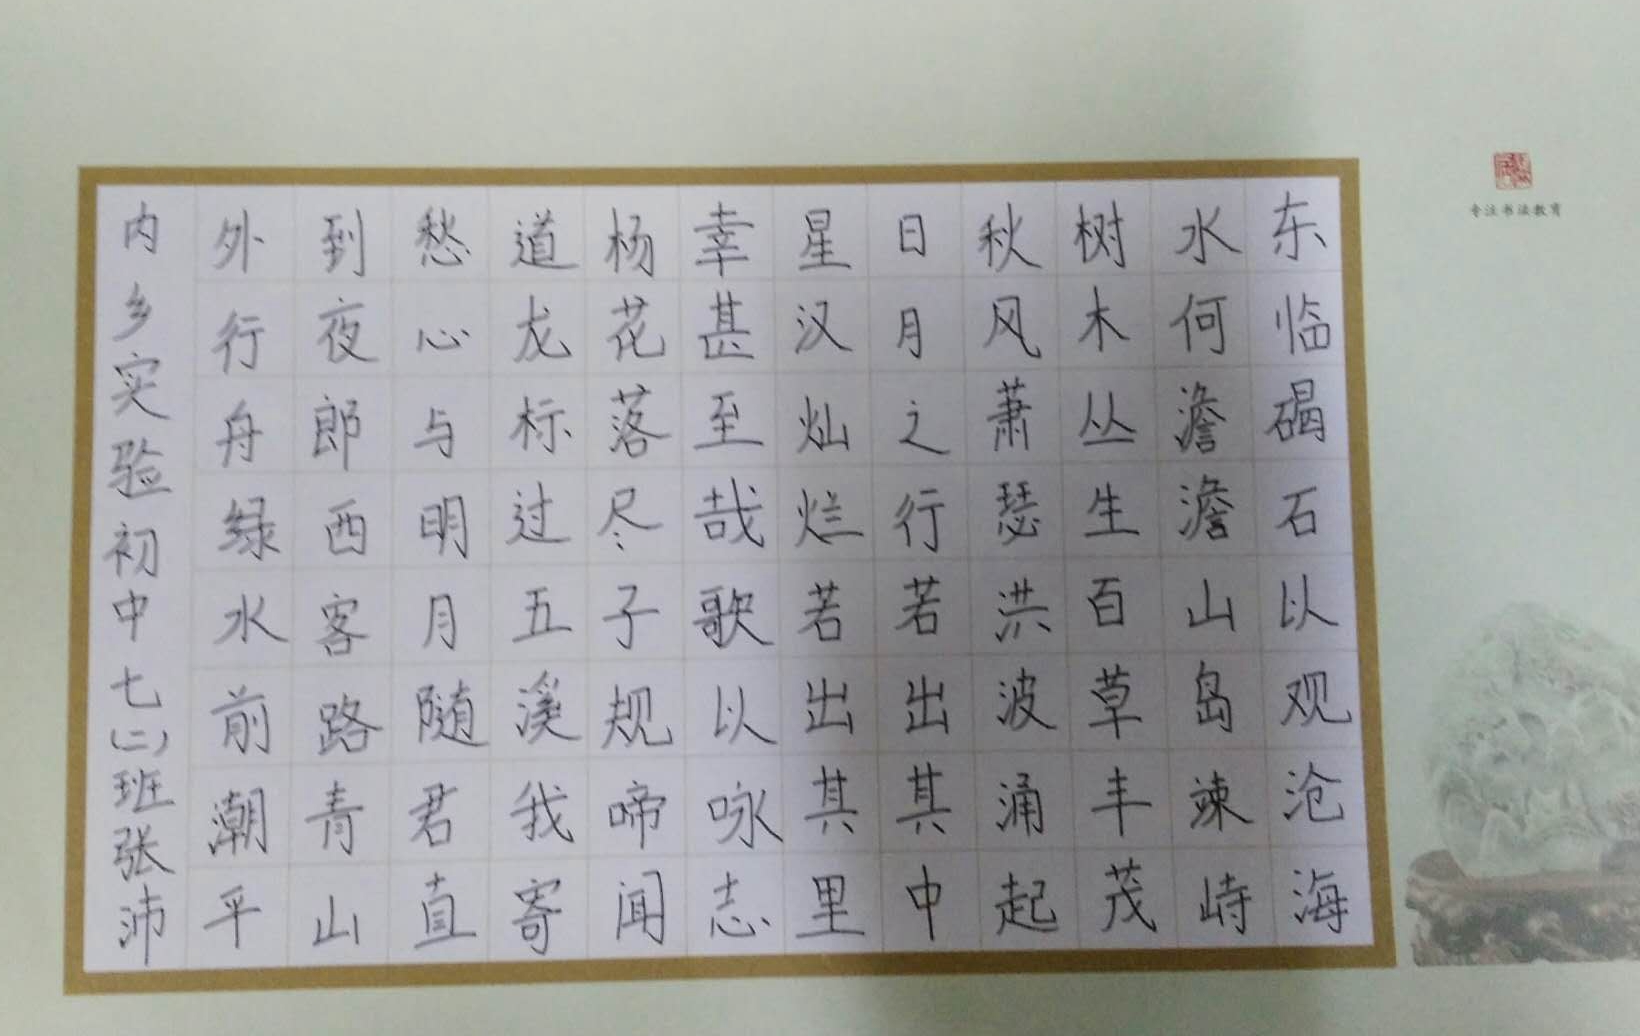 东临碣石以观沧海
水何澹澹山岛竦峙
树木丛生百草丰茂
秋风萧瑟洪波涌起
日月之行若出其中
星汉灿烂若出其里
幸甚至哉歌以咏志
杨花落尽子规啼闻
道龙标过五溪我寄
愁心与明月随君直
到夜郎西客路青山
外行舟绿水前潮平
内乡实验初中七(二)班张沛
专注书法教育